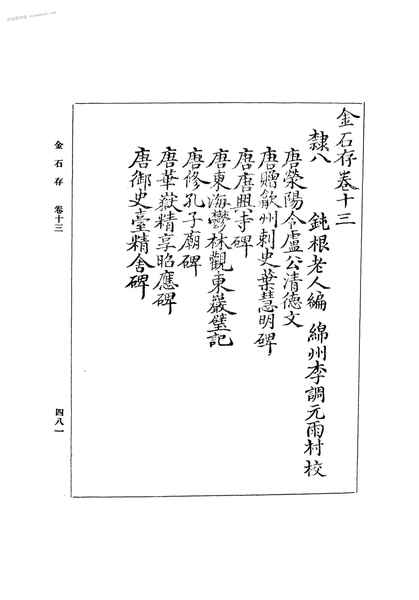 金石存卷十三
隸八 鈍根老人編 綿州李調元雨村校
唐滎陽令盧公清德文
唐贈歙州刺史葉慧明碑
唐唐興寺碑
唐東海鬱林觀東巖壁記
唐修孔子廟碑
唐華嶽精享昭應碑
唐御史臺精舍碑
金石存 卷十三
四八一